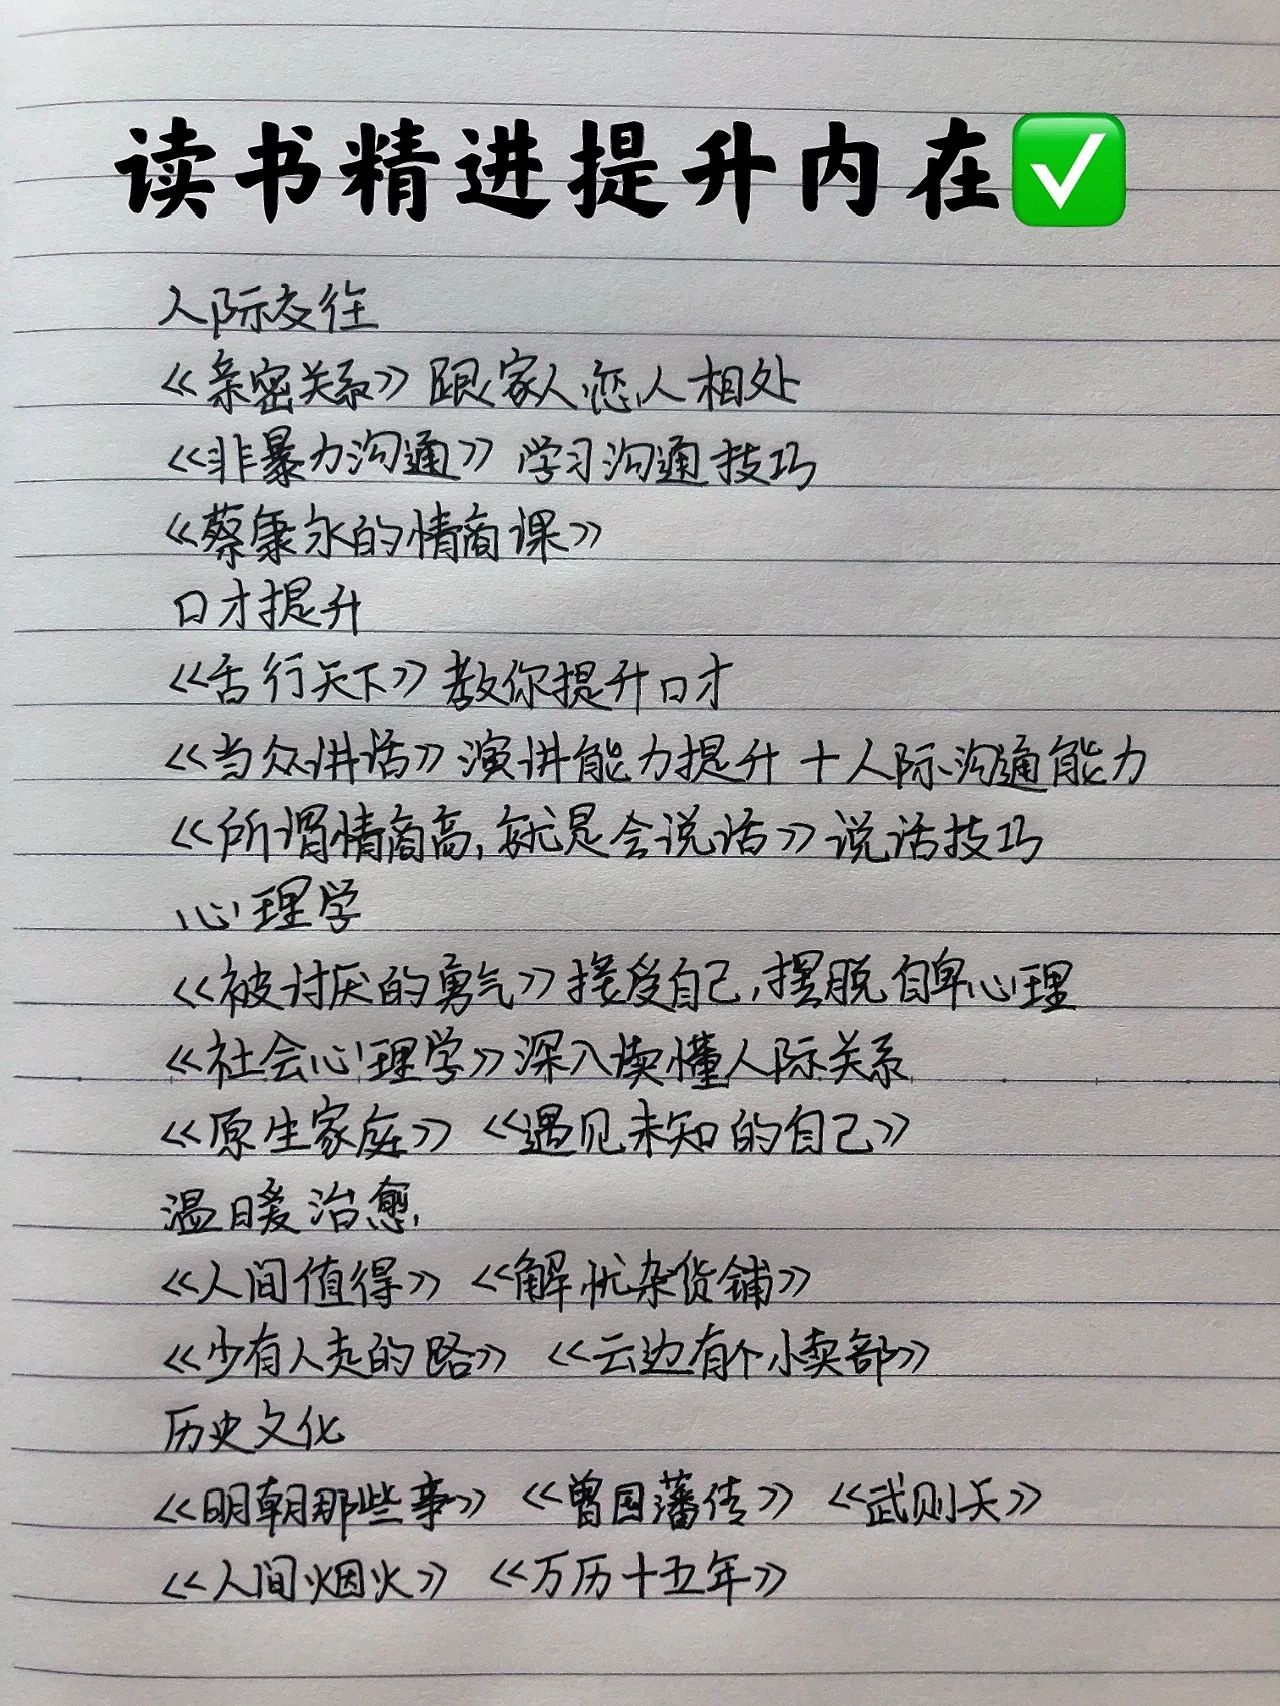 读书精进提升内在✅
人际交往
《亲密关系》跟家人恋人相处
《非暴力沟通》学习沟通技巧
《蔡康永的情商课》
口才提升
《舌行天下》教你提升口才
《当众讲话》演讲能力提升+人际沟通能力
《所谓情商高,就是会说话》说话技巧
心理学
《被讨厌的勇气》接受自己,摆脱自卑心理
《社会心理学》深入读懂人际关系
《原生家庭》《遇见未知的自己》
温暖治愈
《人间值得》《解忧杂货铺》
《少有人走的路》《云边有个小卖部》
历史文化
《明朝那些事》《曾国藩传》《武则天》
《人间烟火》《万历十五年》